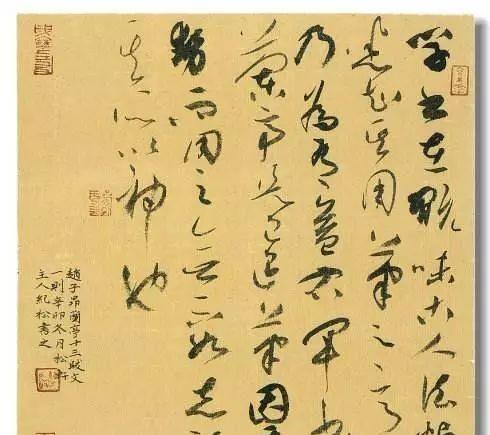 学書在玩味古人法帖
悉知其用筆之意
乃為有益右軍書
蘭亭是已退筆因其
勢而用之無不如志
其所以神也
趙子昂蘭亭十三跋文
一則辛卯冬月松軒
主人紀松書之